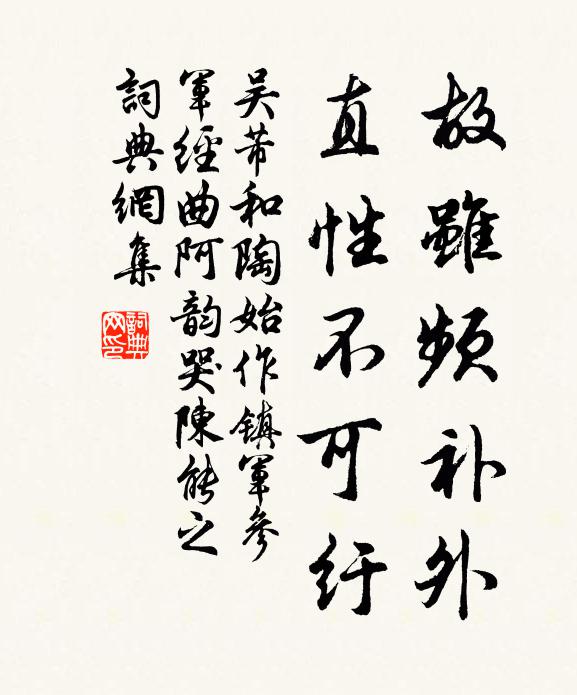 故雖频补外
直性不可纡
吴芾和陶始作鎮軍參
軍經曲阿韵哭陳能之
詞典網集
詞典
网印